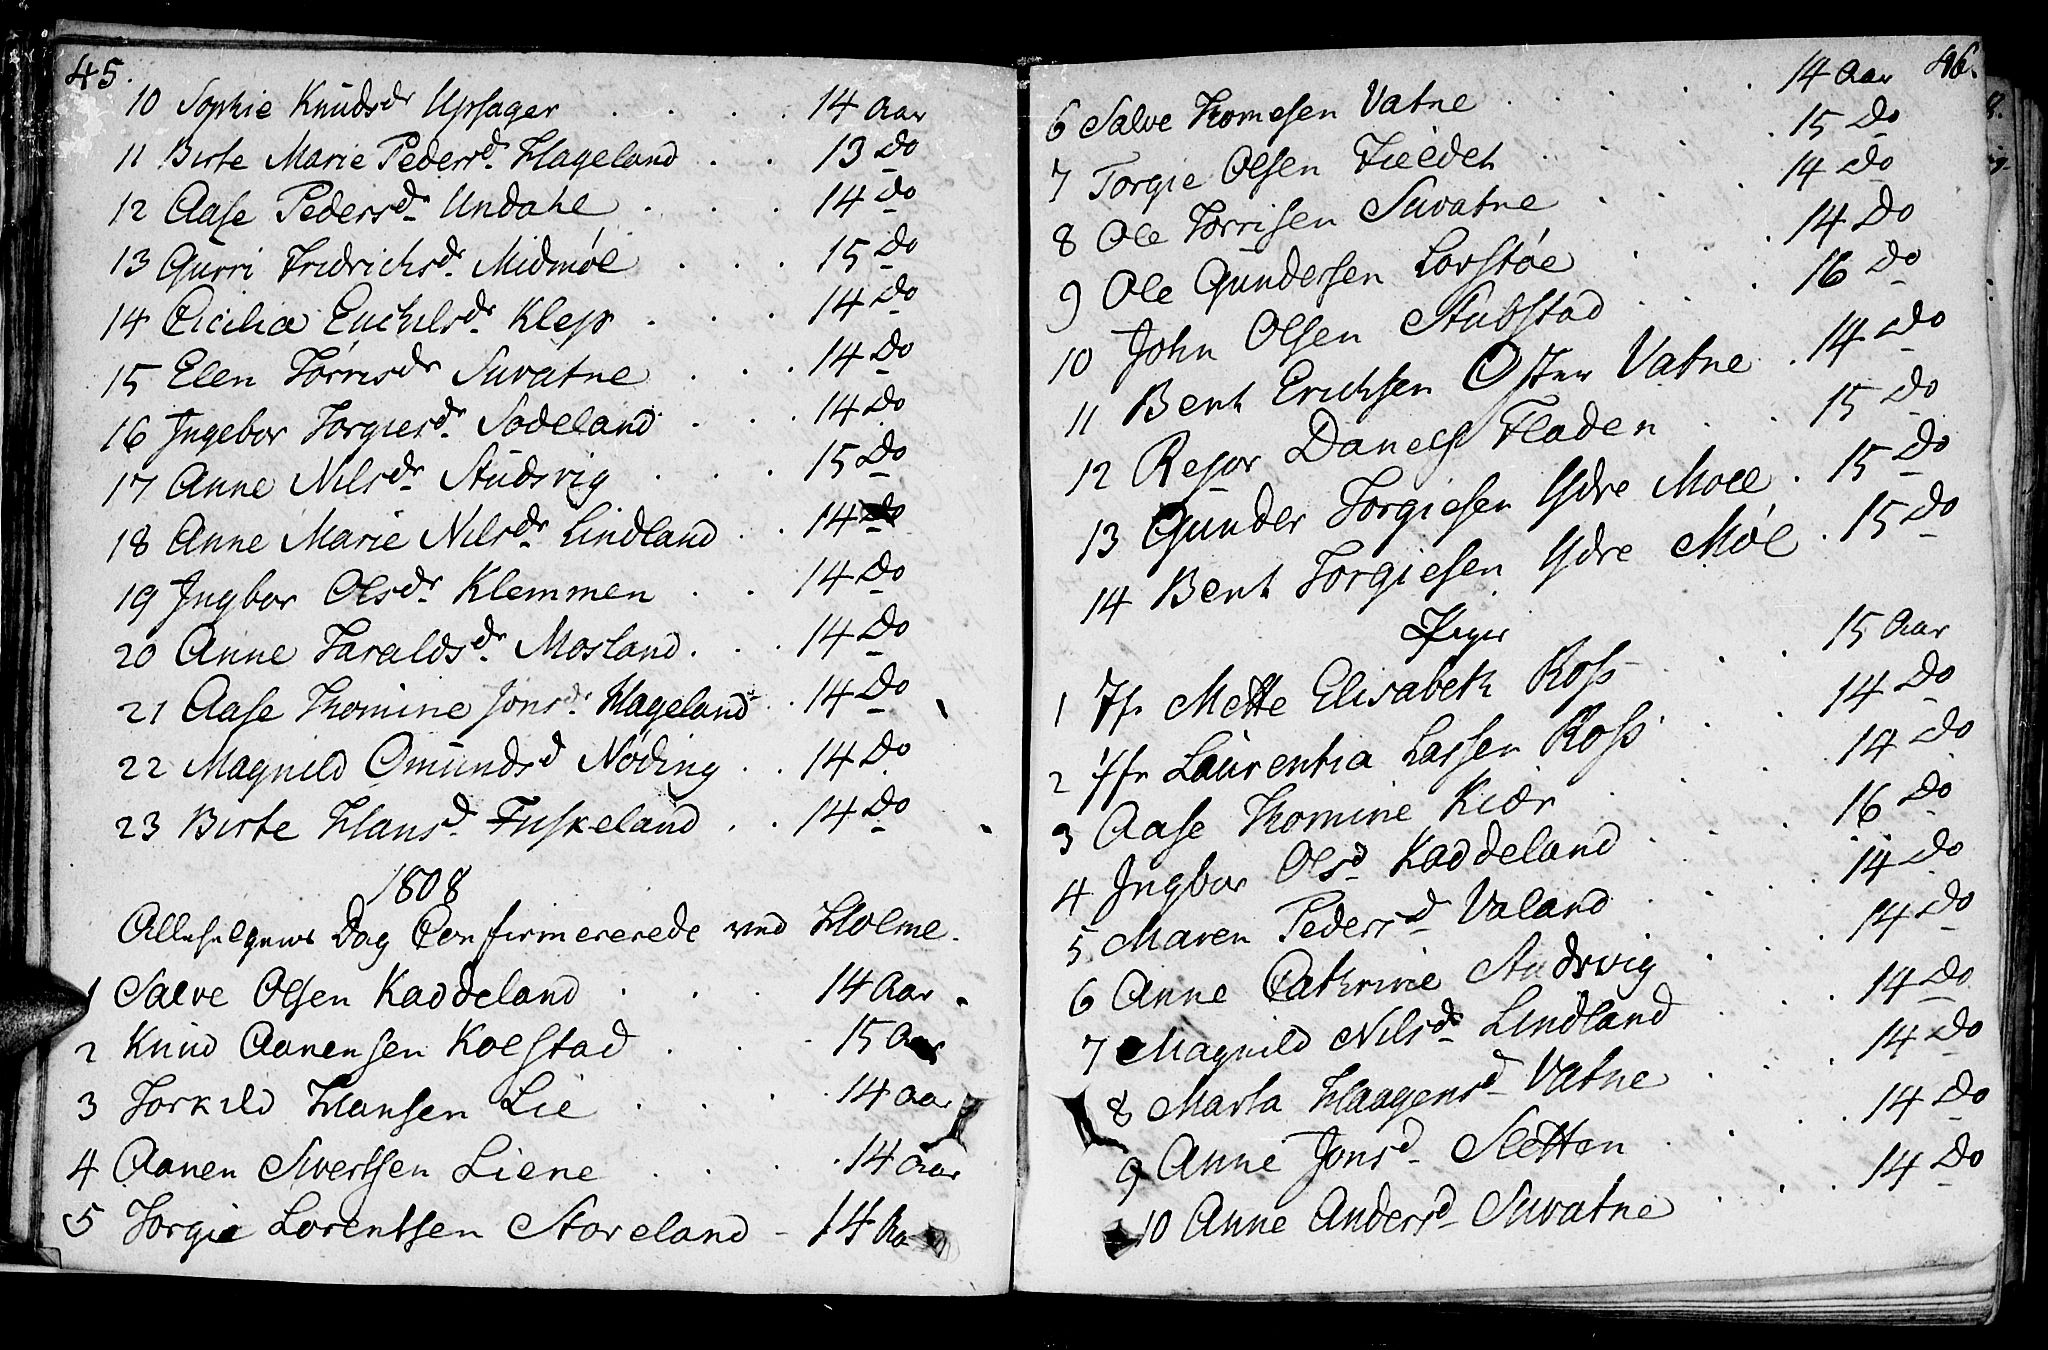 45.
10 Sophie Knudsdr Upsager . . . . 14 Aar
11 Birte Marie Pedersd. Hageland . . 13 Do
12 Aase Pedersd. Undahl . . . 14 Do
13 Gurri Fridrichsd. Midmøl . . . 15 Do
14 Cicilia Euchilsd. Klep . . . 14 Do
15 Elen Tørrisdr Suvatne . . . 14 Do
16 Ingebor Torgiesd. Sodeland . . . 14 Do
17 Anne Nilsdr Studsvig . . . 15 Do
18 Anne Marie Nilsdr. Lindland . . 14 Do
19 Ingbor Olsdr. Klemmen . . 14 Do
20 Anne Taraldsdr. Mosland . . . 14 Do
21 Aase Thomine Jonsd. Hageland . . 14 Do
22 Magnild Omundsd Nøding . . 14 Do
23 Birte Hansd. Fuskeland . . 14 Do
1808
Allehelgens Dag Confirmererede ved Holme.
1 Salve Olsen Kaddeland . . . 14 Aar
2 Knud Aanensen Kolstad . . . 15 Aar
3 Torkild Hansen Lie . . . . 14 Aar
4 Aanen Sivertsen Liene . . . . 14 Aar
5 Torgie Lorentsen Storeland - 14 Aa
46.
6 Salve Thomesen Vatne . . . . . 14 Aar
7 Torgie Olsen Fieldet . . . . 15 Do
8 Ole Torrisen Suvatne . . . 14 Do
9 Ole Gundersen Lovstøe . . . 14 Do
10 John Olsen Stubstad . . . 16 Do
11 Bent Erichsen Øster Vatne . 14 Do
12 Rejor Danels Fladen . . 15 Do
13 Gunder Torgiesen Ydre Moel . 15 Do
14 Bent Torgiesen Ydre Møl . 15 Do
Piger
1 Jfr Mette Elisabeth Ross . . . 15 Aar
2 Jfr Laurentia Lassen Ross . . . 14 Do
3 Aase Thomine Kiær . . . 14 Do
4 Ingbor Olsd Kaddeland . . . 16 Do
5 Maren Pedersd Valand . . . 14 Do
6 Anne Cathrine Studsvig . . . 14 Do
7 Magnild Nilsd. Lindland . . . 14 Do
8 Marta Haagensd Vatne . . . 14 Do
9 Anne Jonsd. Sletten . . . . 14 Do
10 Anne Andersd Suvatne . . . 14 Do